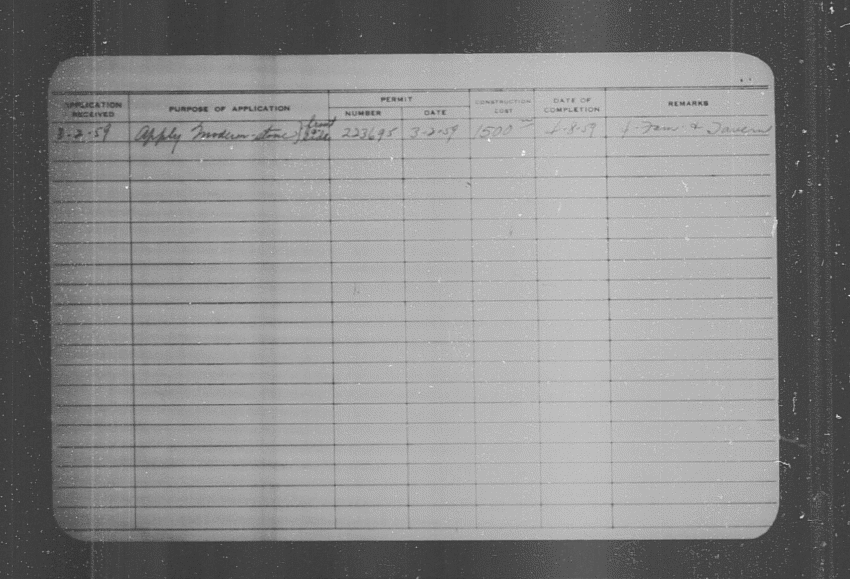 APPLICATION RECEIVED PURPOSE OF APPLICATION PERMIT NUMBER DATE CONSTRUCTION COST DATE OF COMPLETION REMARKS
3-2-59 Apply Modern-stone} front side 223695 3-2-59 1500 -8-59 Fam. & Tavern